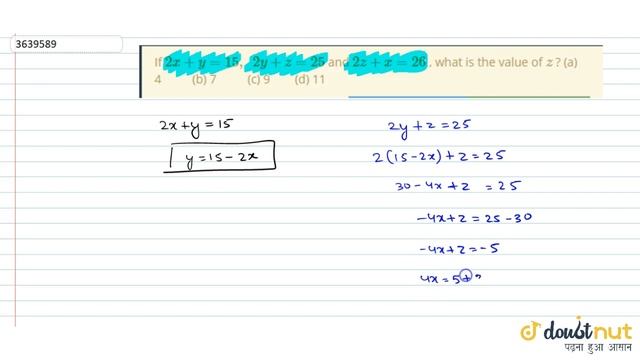 3639589
If 2x + y = 15, 2y + z = 25 and 2z + x = 26, what is the value of z ? (a)
4 (b) 7 (c) 9 (d) 11
2x+y=15
y=15-2x
2y+z=25
2(15-2x)+z=25
30-4x+z =25
-4x+z=25-30
-4x+z=-5
4x=5+
doubtnut
पढ़ना हुआ आसान